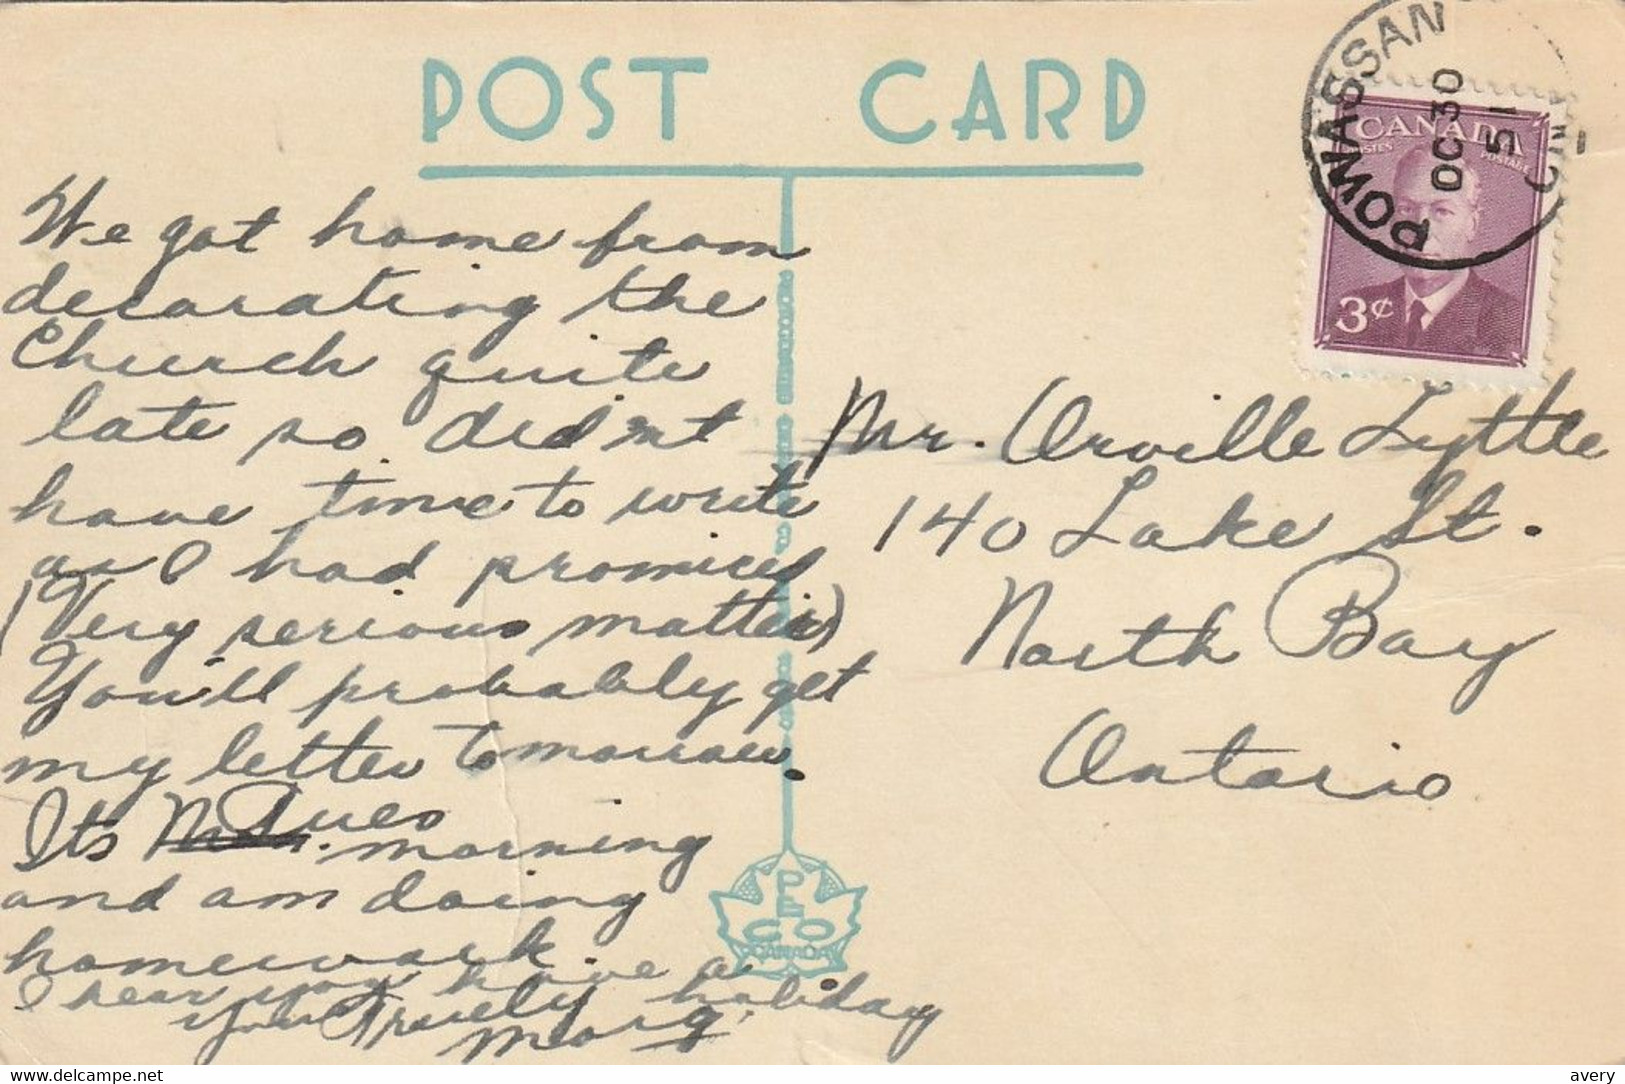 POST CARD
POWASSAN
OC 30
51
ONT
CANADA
POSTES POSTAGE
3¢
We got home from
decorating the
Church quite
late so didn't
have time to write
as I had promised
(Very serious matter)
You'll probably get
my letter tomorrow.
Its Tues morning
and am doing
homework
I hear you have a holiday
Yours Truely
Marg.
Mr. Orville Lyttle
140 Lake St.
North Bay
Ontario
PECO
CANADA
delcampe.net
avery